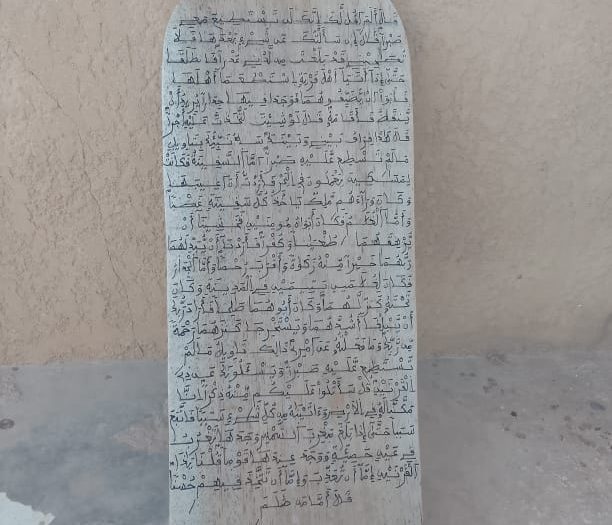 قال ألم أقل لك إنك لن تستطيع معي
صبرا قال إن سألتك عن شيء بعدها فلا
تصحبني قد بلغت من لدني عذرا فانطلقا
حتى إذا أتيا أهل قرية استطعما أهلها
فأبوا أن يضيفوهما فوجدا فيها جدارا يريد أن
ينقض فأقامه قال لو شئت لتخذت عليه أجرا
قال هذا فراق بيني وبينك سأنبئك بتاويل
ما لم تستطع عليه صبرا أما السفينة فكانت
لمسكين يعملون في البحر فأردت أن أعيبها
وكان وراءهم ملك يأخذ كل سفينة غصبا
وأما الغلم فكان أبواه مومنين فخشينا أن
يرهقهما طغينا وكفرا فأردنا أن يبدلهما
ربهما خيرا منه زكوة وأقرب رحما وأما الجدار
فكان لغلمين يتيمين في المدينة وكان
تحته كنز لهما وكان أبوهما صلحا فأراد ربك
أن يبلغا أشدهما ويستخرجا كنزهما رحمة
من ربك وما فعلته عن أمري ذالك تاويل ما لم
تستطع عليه صبرا ويسئلونك عن ذي
القرنين قل سأتلوا عليكم منه ذكرا إنا
مكنا له في الأرض وءاتينه من كل شيء سببا فاتبع
سببا حتى إذا بلغ مغرب الشمس وجدها تغرب
في عين حمئة ووجد عندها قوما قلنا يذا
القرنين إما أن تعذب وإما أن تتخذ فيهم حسنا
قال أما من ظلم